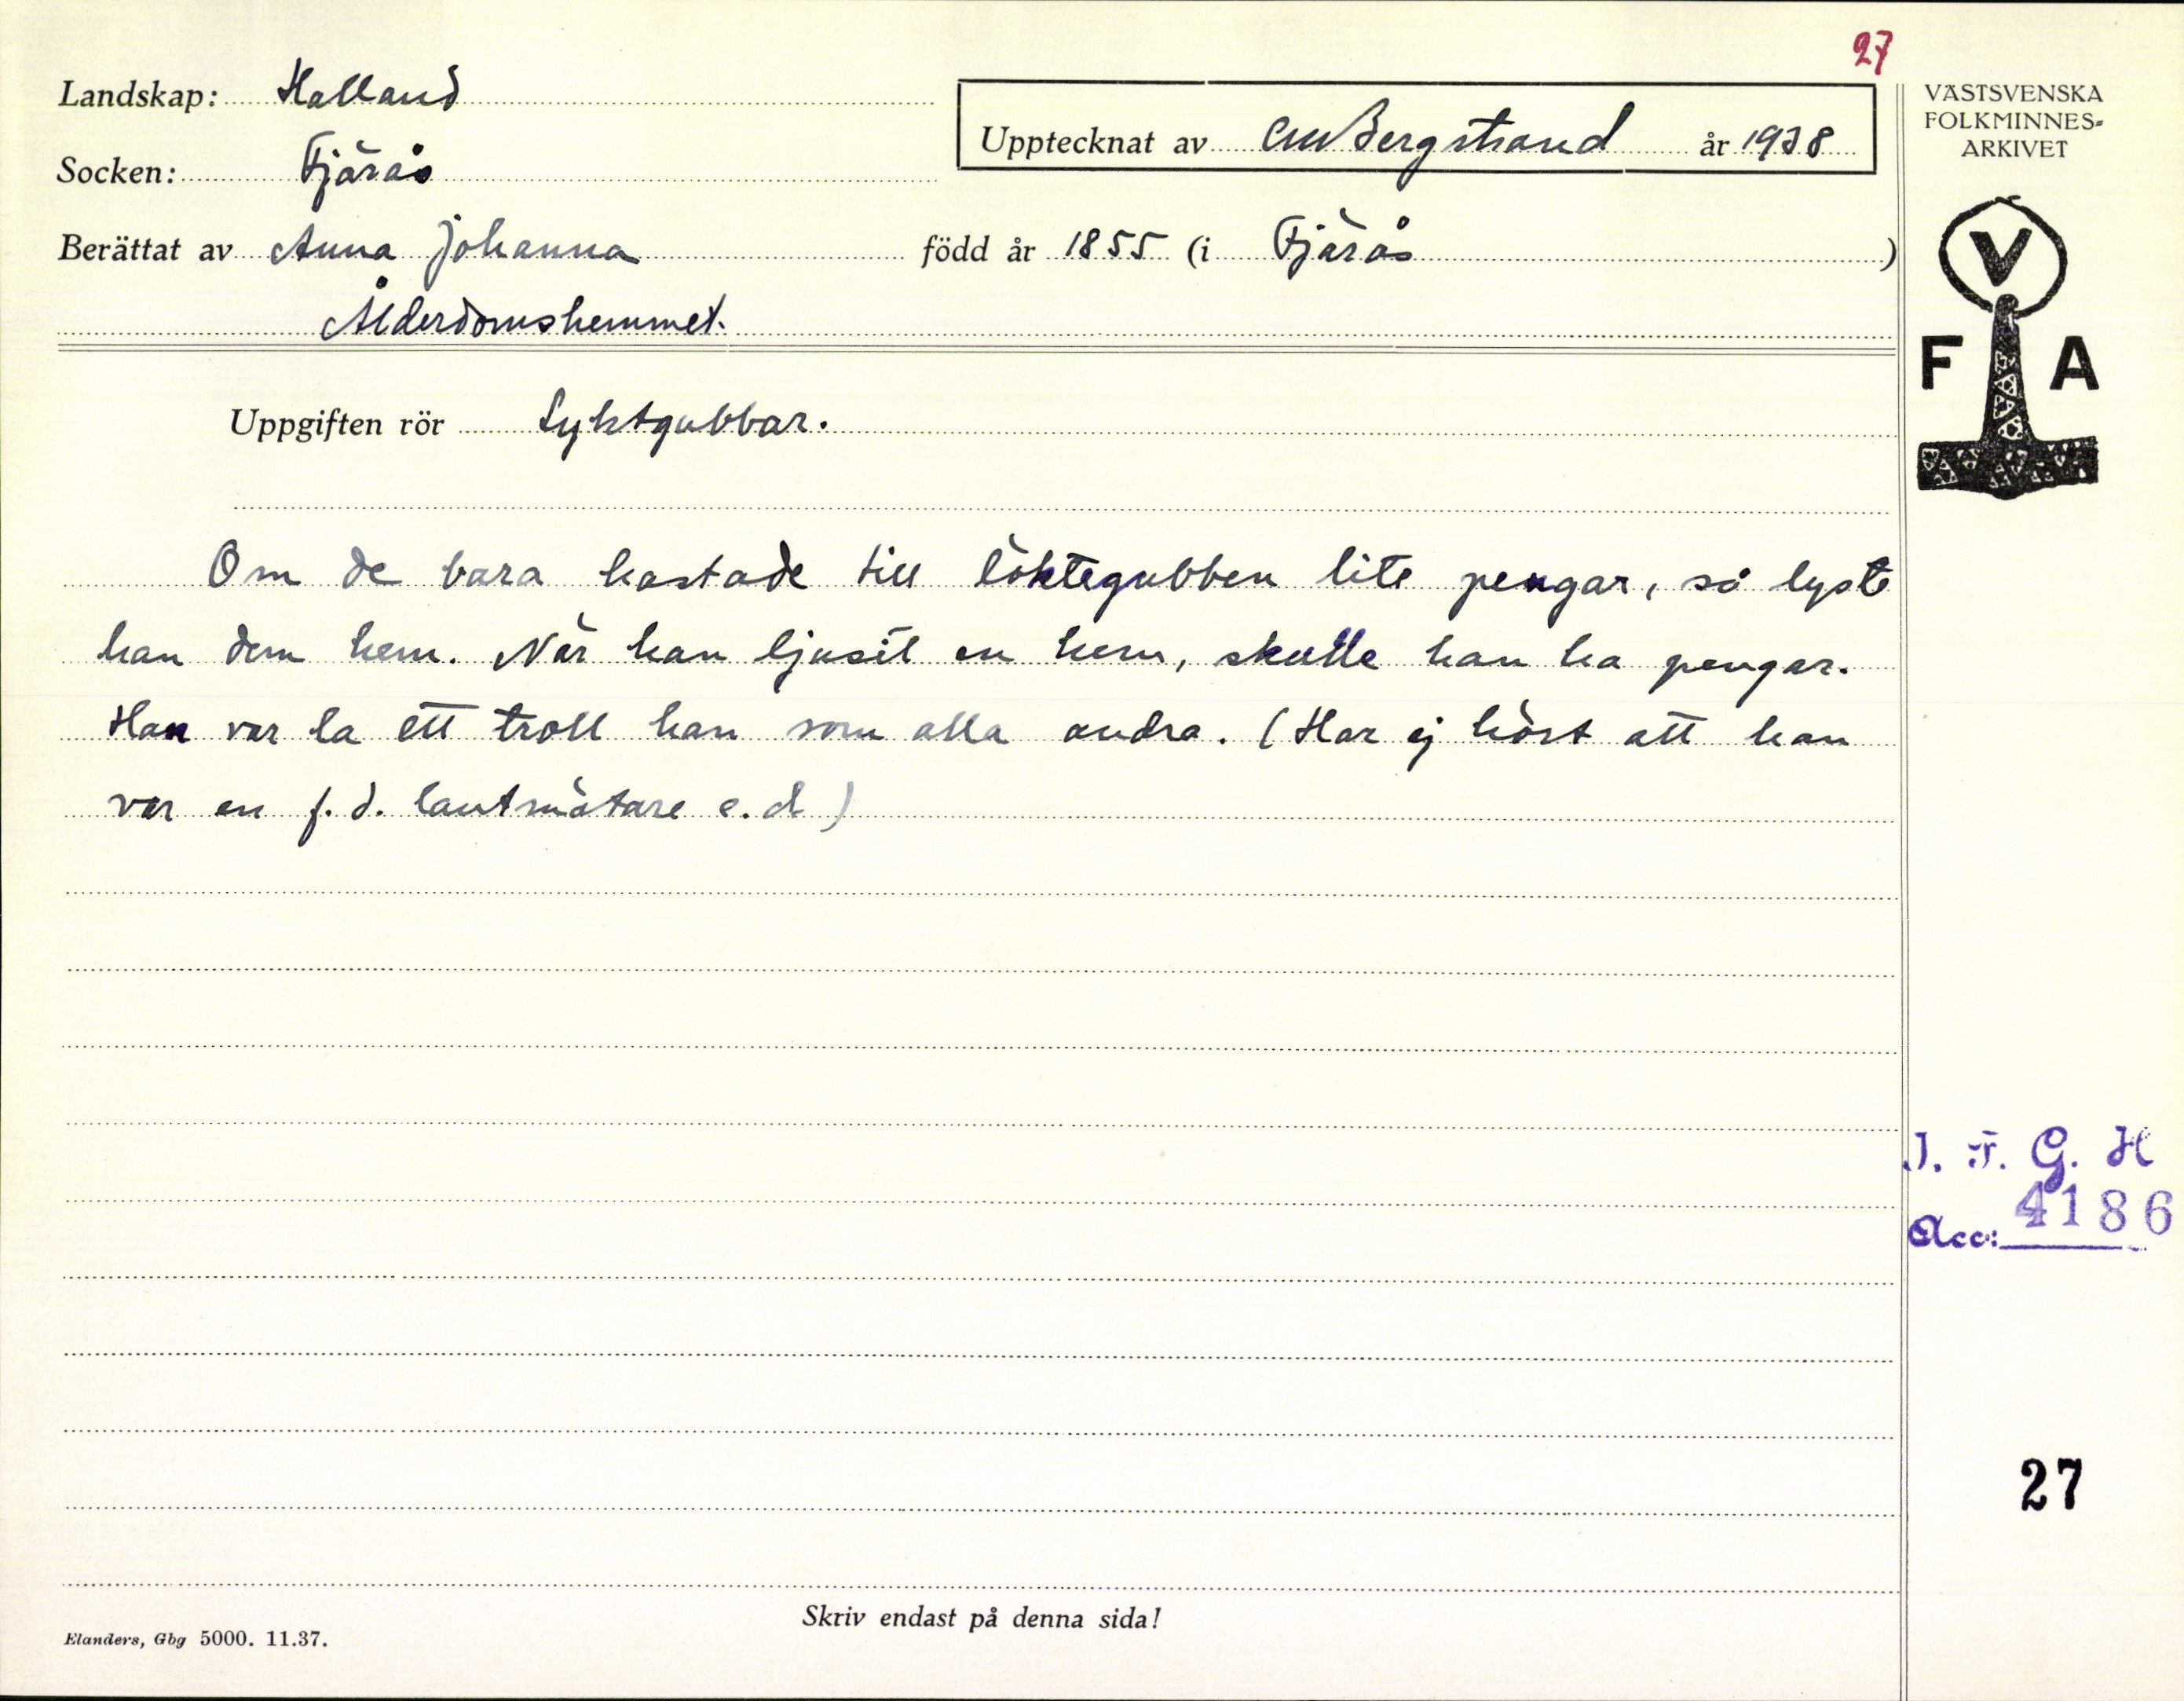 27
Landskap: Halland
Upptecknat av CM Bergstrand år 1938
VÄSTSVENSKA
FOLKMINNES-
ARKIVET
Socken: Fjärås
Berättat av Anna Johanna född år 1855 (i Fjärås)
Ålderdomshemmet.
V
F A
Uppgiften rör Lyktgubbar.
Om de bara kastade till löktegubben lite pengar, så lyste
han dem hem. När han ljusit en hem, skulle han ha pengar.
Han var la ett troll han som alla andra. (Har ej hört att han
var en f.d. lantmätare e.d)
I. F. G. H
Acc: 4186
27
Skriv endast på denna sida!
Elanders, Gbg 5000. 11.37.